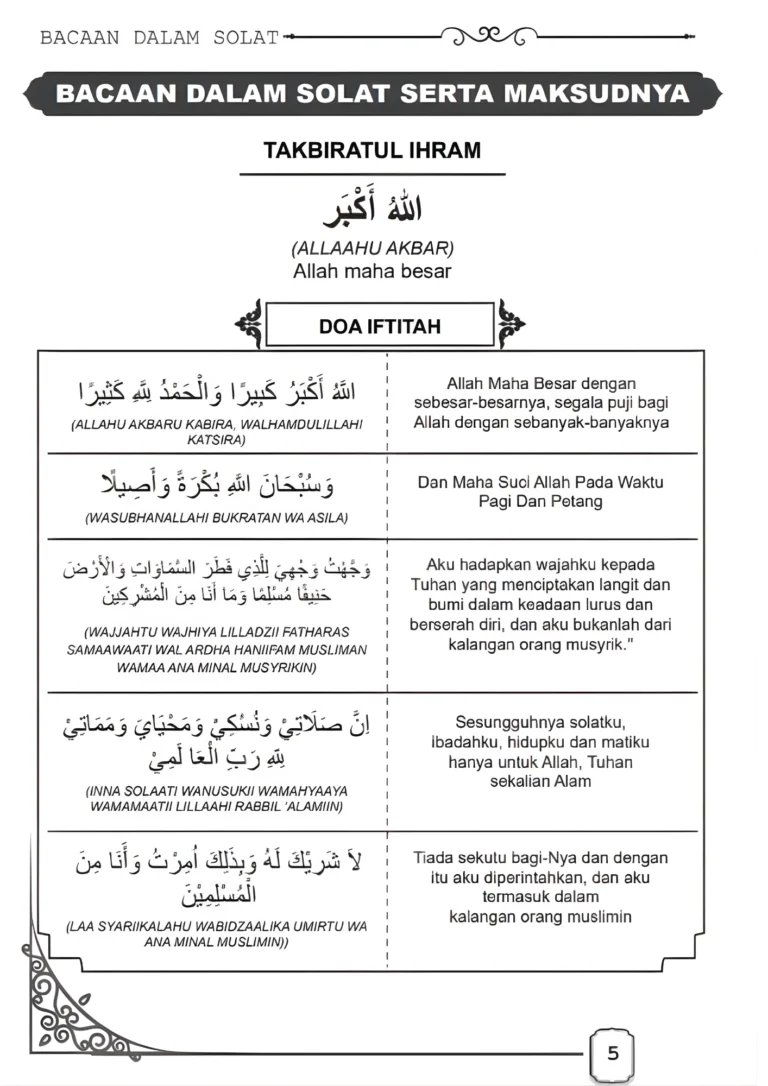 BACAAN DALAM SOLAT
BACAAN DALAM SOLAT SERTA MAKSUDNYA
TAKBIRATUL IHRAM
اللهُ أَكْبَر
(ALLAAHU AKBAR)
Allah maha besar
DOA IFTITAH
اللَّهُ أَكْبَرُ كَبِيرًا وَالْحَمْدُ لِلَّهِ كَثِيرًا
(ALLAHU AKBARU KABIRA, WALHAMDULILLAHI
KATSIRA)
Allah Maha Besar dengan
sebesar-besarnya, segala puji bagi
Allah dengan sebanyak-banyaknya
وَسُبْحَانَ اللَّهِ بُكْرَةً وَأَصِيلًا
(WASUBHANALLAHI BUKRATAN WA ASILA)
Dan Maha Suci Allah Pada Waktu
Pagi Dan Petang
وَجَّهْتُ وَجْهِيَ لِلَّذِي فَطَرَ السَّمَاوَاتِ وَالْأَرْضَ
حَنِيفًا مُسْلِمًا وَمَا أَنَا مِنَ الْمُشْرِكِينَ
(WAJJAHTU WAJHIYA LILLADZII FATHARAS
SAMAAWAATI WAL ARDHA HANIIFAM MUSLIMAN
WAMAA ANA MINAL MUSYRIKIN)
Aku hadapkan wajahku kepada
Tuhan yang menciptakan langit dan
bumi dalam keadaan lurus dan
berserah diri, dan aku bukanlah dari
kalangan orang musyrik."
اِنَّ صَلَاتِيْ وَنُسُكِيْ وَمَحْيَايَ وَمَمَاتِيْ
لِلّٰهِ رَبِّ الْعَا لَمِيْ
(INNA SOLAATI WANUSUKII WAMAHYAAYA
WAMAMAATII LILLAAHI RABBIL 'ALAMIIN)
Sesungguhnya solatku,
ibadahku, hidupku dan matiku
hanya untuk Allah, Tuhan
sekalian Alam
لاَ شَرِيْكَ لَهُ وَبِذٰلِكَ اُمِرْتُ وَأَنَا مِنَ
الْمُسْلِمِيْنَ
(LAA SYARIIKALAHU WABIDZAALIKA UMIRTU WA
ANA MINAL MUSLIMIN))
Tiada sekutu bagi-Nya dan dengan
itu aku diperintahkan, dan aku
termasuk dalam
kalangan orang muslimin
5